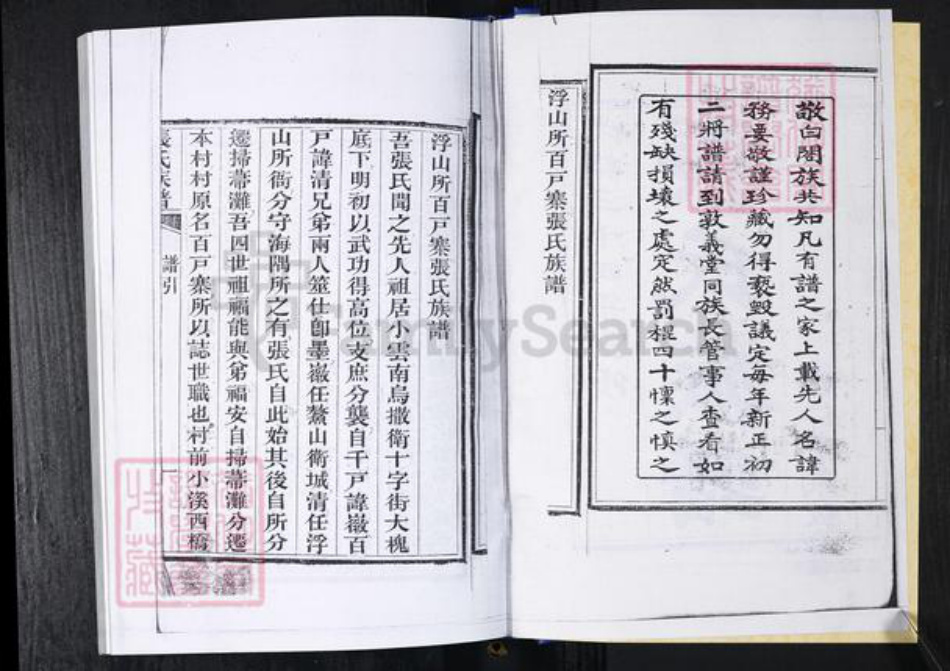 敬白閤族共知凡有譜之家上載先人名諱
務要敬謹珍藏勿得褻毀議定每年新正初
二將譜請到敦義堂同族長管事人查看如
有殘缺損壞之處定然罰棍四十懍之慎之
浮山所百戸寨張氏族譜
浮山所百戸寨張氏族譜
吾張氏聞之先人祖居小雲南烏撒衛十字街大槐
底下明初以武功得高位支庶分襲自千戸諱嶶百
戸諱清兄弟兩人筮仕卽墨嶶任鰲山衛城清任浮
山所衙分守海隅所之有張氏自此始其後自所分
遷掃帚灘吾四世祖福能與弟福安自掃帚灘分遷
本村村原名百戸寨所以誌世職也村前小溪西橋
張氏族譜
譜引
一
FamilySearch